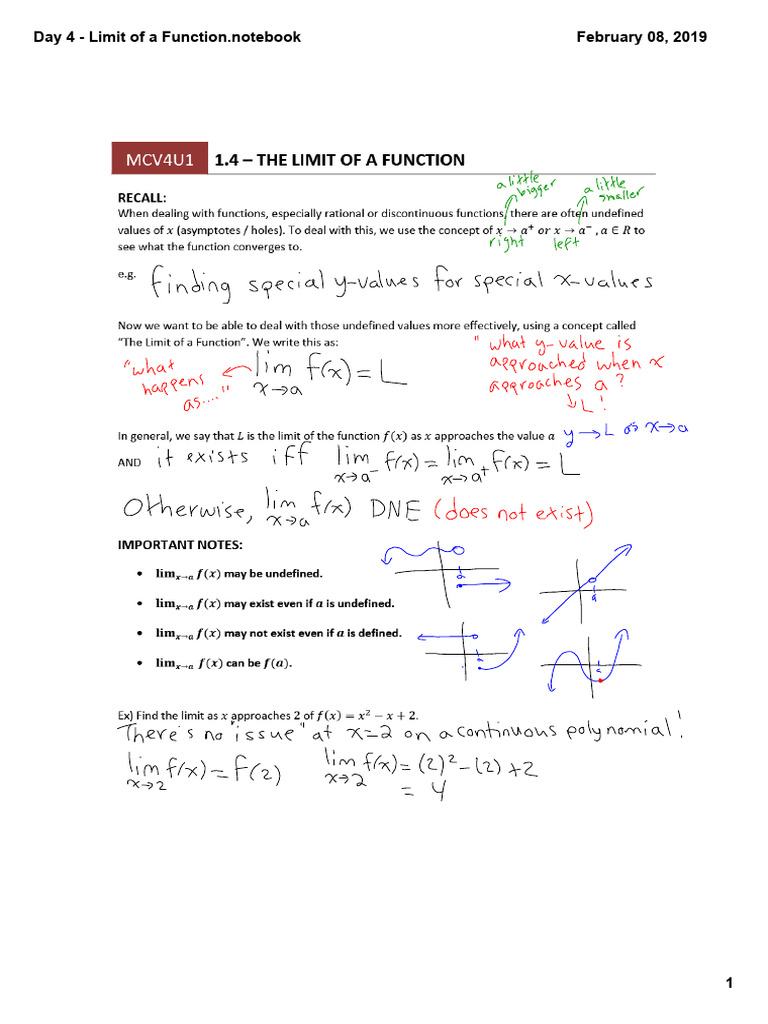 Day 4 - Limit of a Function.notebook
February 08, 2019
MCV4U1
1.4 – THE LIMIT OF A FUNCTION
a little bigger
a little smaller
RECALL:
When dealing with functions, especially rational or discontinuous functions, there are often undefined
values of x (asymptotes / holes). To deal with this, we use the concept of x → a⁺ or x → a⁻ , a ∈ R to
right
left
see what the function converges to.
e.g. finding special y-values for special x-values
Now we want to be able to deal with those undefined values more effectively, using a concept called
"The Limit of a Function". We write this as:
"what happens as...."
lim x→a f(x) = L
"what y-value is
approached when x
approaches a?
↳ L!
In general, we say that L is the limit of the function f(x) as x approaches the value a
y → L as x → a
AND it exists iff lim x→a⁻ f(x) = lim x→a⁺ f(x) = L
Otherwise, lim x→a f(x) DNE (does not exist)
IMPORTANT NOTES:
• limₓ→ₐ f(x) may be undefined.
• limₓ→ₐ f(x) may exist even if a is undefined.
• limₓ→ₐ f(x) may not exist even if a is defined.
• limₓ→ₐ f(x) can be f(a).
a
a
a
a
Ex) Find the limit as x approaches 2 of f(x) = x² − x + 2.
There's no "issue" at x=2 on a continuous polynomial!
lim x→2 f(x) = f(2)
lim x→2 f(x) = (2)² - (2) + 2
= 4
1